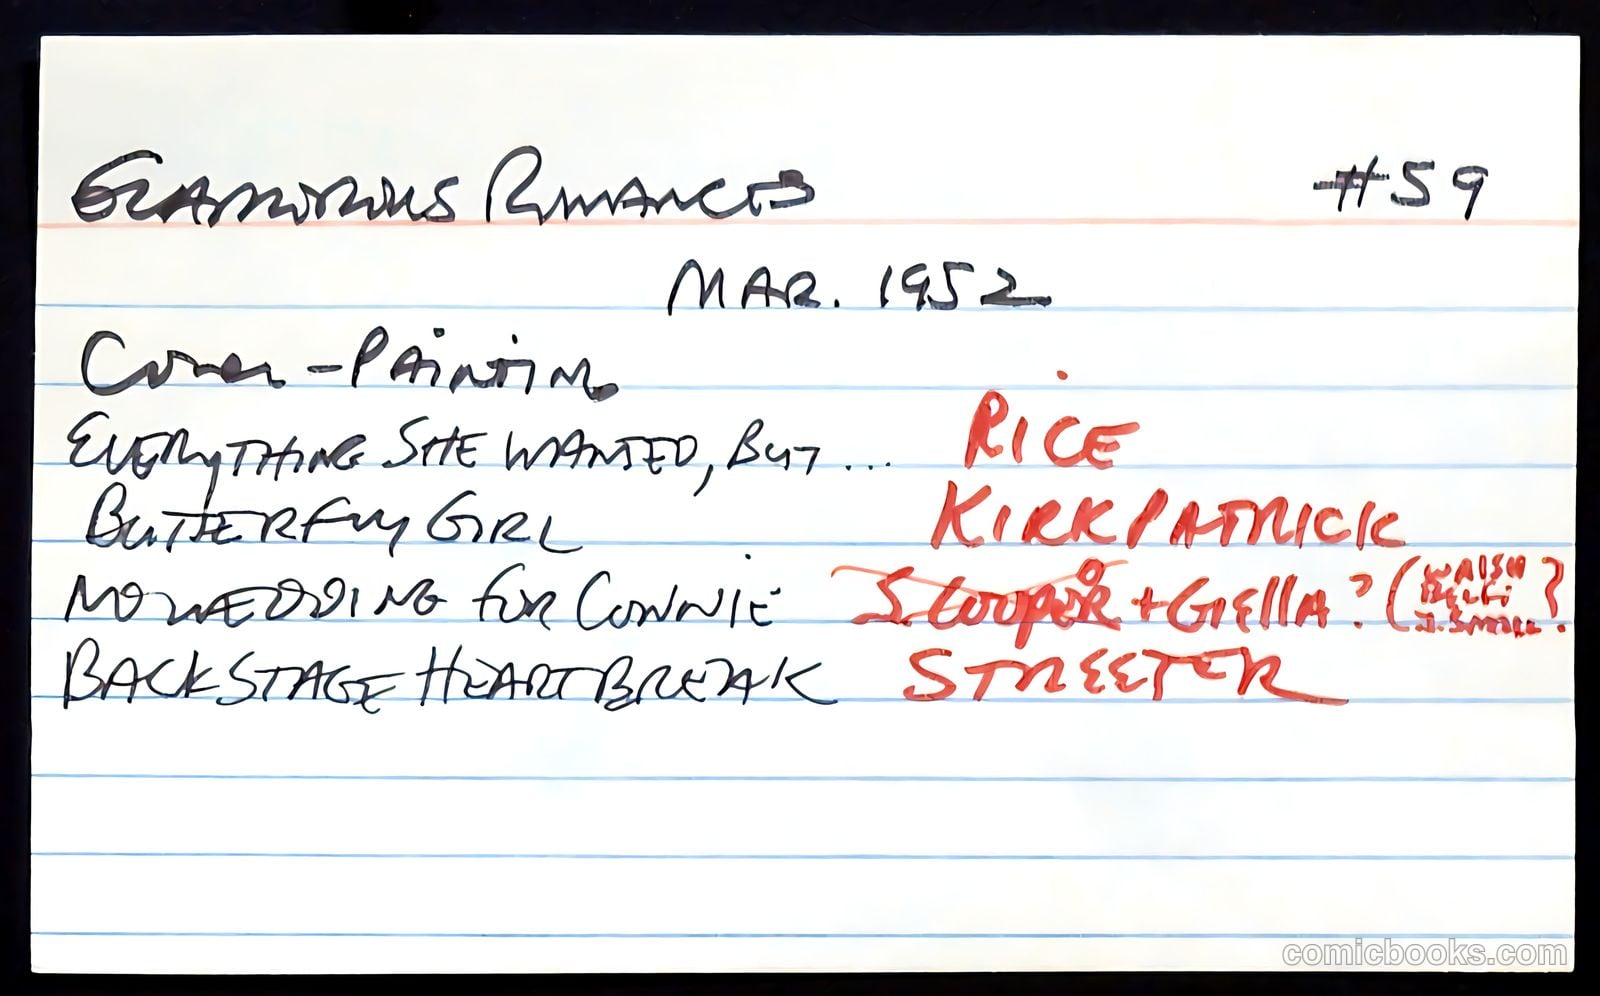 GLAMOROUS ROMANCES #59
MAR. 1952
COVER - PAINTING
EVERYTHING SHE WANTED, BUT ... RICE
BUTTERFLY GIRL KIRKPATRICK
NO WEDDING FOR CONNIE S. COOPER + GIELLA? (
BACKSTAGE HEARTBREAK STREETER
comicbooks.com